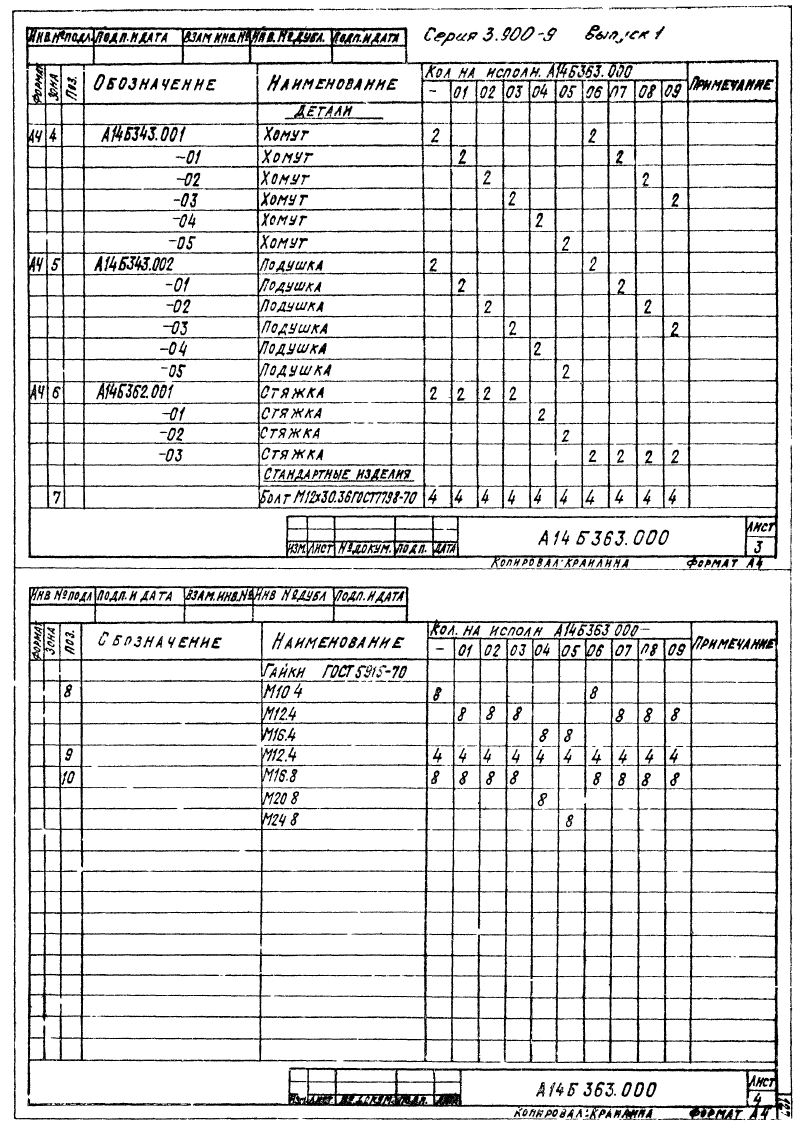 Инв.№подл. Подп. и дата Взам инв.№ Инв.№дубл. Подп. и дата Серия 3.900-9 Выпуск 1
Формат Зона Поз. Обозначение Наименование Кол на исполн. А14Б363.000 Примечание
- 01 02 03 04 05 06 07 08 09
Детали
А4 4 А14Б343.001 Хомут 2 2
-01 Хомут 2 2
-02 Хомут 2 2
-03 Хомут 2 2
-04 Хомут 2
-05 Хомут 2
А4 5 А14Б343.002 Подушка 2 2
-01 Подушка 2 2
-02 Подушка 2 2
-03 Подушка 2 2
-04 Подушка 2
-05 Подушка 2
А4 6 А14Б362.001 Стяжка 2 2 2 2
-01 Стяжка 2
-02 Стяжка 2
-03 Стяжка 2 2 2 2
Стандартные изделия
7 Болт М12х30.36 ГОСТ7798-70 4 4 4 4 4 4 4 4 4 4
Изм. Лист №докум. Подп. Дата А14Б363.000 Лист 3
Копировал: Краилина Формат А4
Инв №подл Подп. и дата Взам.инв.№ Инв №дубл Подп. и дата
Формат Зона Поз. Обозначение Наименование Кол. на исполн А14Б363 000- Примечание
- 01 02 03 04 05 06 07 08 09
Гайки ГОСТ 5915-70
8 М10 4 8 8
М12.4 8 8 8 8 8 8
М16.4 8 8
9 М12.4 4 4 4 4 4 4 4 4 4 4
10 М16.8 8 8 8 8 8 8 8 8
М20 8 8
М24 8 8
Изм. Лист №докум. Подп. Дата А14Б 363.000 Лист 4
Копировал: Краилина Формат А4